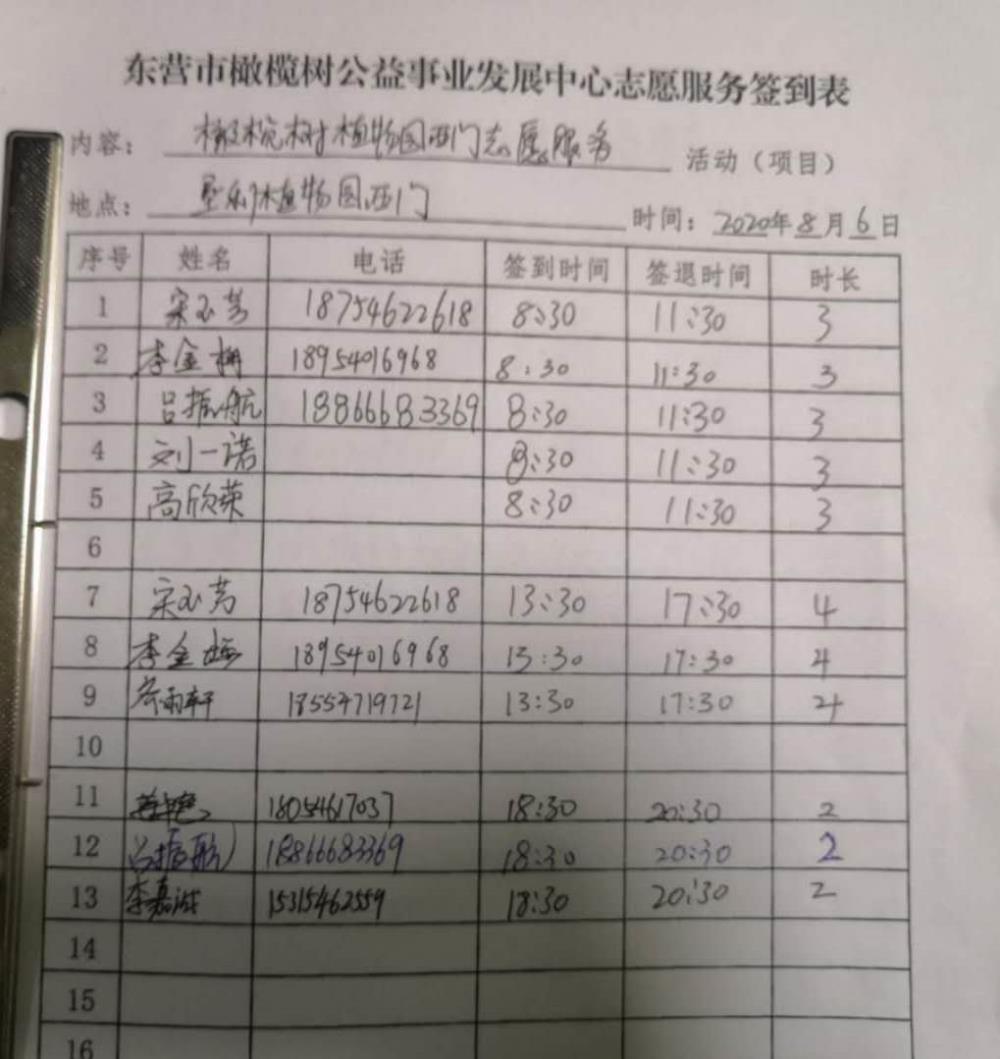 东营市橄榄树公益事业发展中心志愿服务签到表
内容： 橄榄树植物园西门志愿服务 活动（项目）
地点： 垦利植物园西门 时间：2020年8月6日
序号 姓名 电话 签到时间 签退时间 时长
1 宋玉芳 18754622618 8:30 11:30 3
2 李金梅 18954016968 8:30 11:30 3
3 吕振航 18866683369 8:30 11:30 3
4 刘一诺 8:30 11:30 3
5 高欣荣 8:30 11:30 3
6
7 宋玉芳 18754622618 13:30 17:30 4
8 李金梅 18954016968 13:30 17:30 4
9 雨轩 18554719721 13:30 17:30 4
10
11 18054617037 18:30 20:30 2
12 吕振航 18866683369 18:30 20:30 2
13 李嘉诚 15315462559 18:30 20:30 2
14
15
16